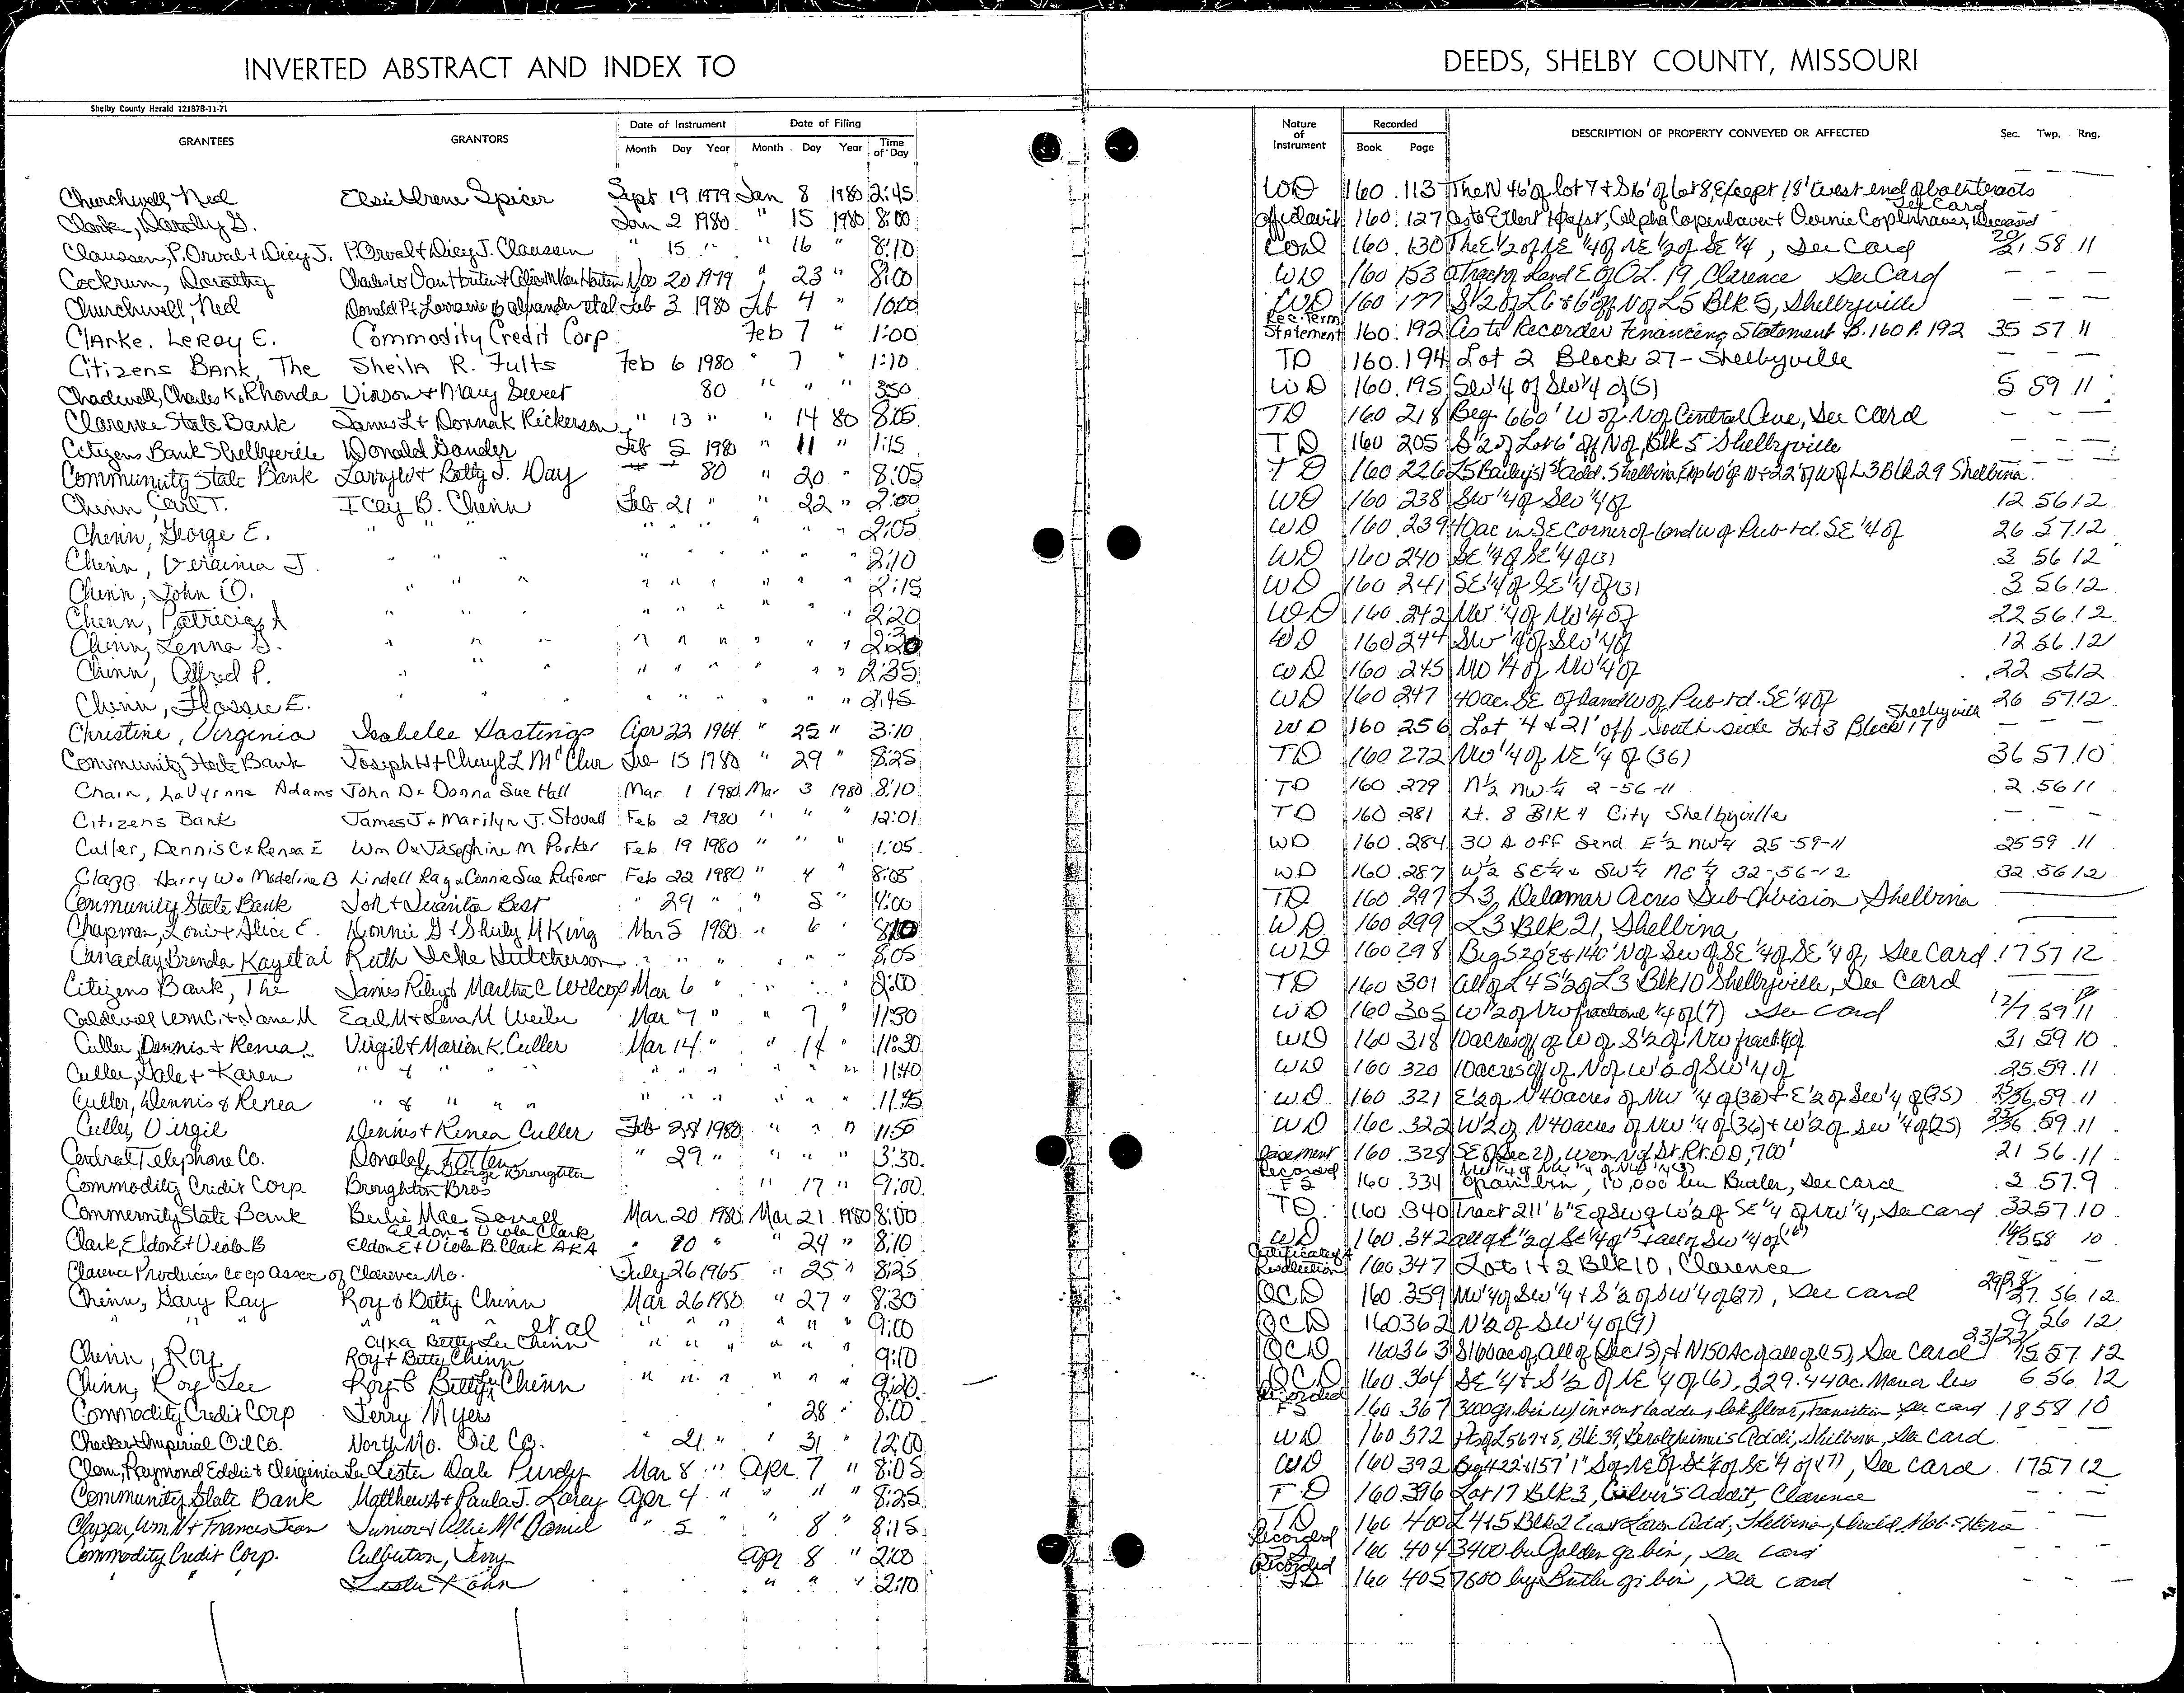 INVERTED ABSTRACT AND INDEX TO DEEDS, SHELBY COUNTY, MISSOURI
Shelby County Herald 121878-11-71
GRANTEES GRANTORS Date of Instrument Month Day Year Date of Filing Month Day Year Time of Day Nature of Instrument Recorded Book Page DESCRIPTION OF PROPERTY CONVEYED OR AFFECTED Sec. Twp. Rng.
Churchwell, Ned Elsie Irene Spicer Sept 19 1979 Jan 8 1980 2:45 WD 160 113 The N 46' of lot 7 + S16' of lot 8, Except 18' West end of both tracts See Card
Clark, Dorothy G. Jan 2 1980 " 15 1980 8:00 Affidavit 160 127 as to Elbert Copenhaver + Vernie Copenhaver, Deceased
Claussen, P. Orval + Dicy J. P. Orval + Dicy J. Claussen " 15 " " 16 " 8:10 WD 160 130 The E 1/2 of NE 1/4 of NE 1/2 of SE 1/4, See Card 20/21 58 11
Cockrum, Dorothy Charles W Van Houten + Van Houten Nov 20 1979 " 23 " 8:00 WD 160 153 a Tract of Land E of O.L. 19, Clarence See Card – – –
Churchwell, Ned Donald P + Lorraine B Alexander etal Feb 3 1980 Feb 4 " 10:00 WD 160 177 S 1/2 of L6 + 6' off N of L5 Blk 5, Shelbyville – – –
Clarke. LeRoy E. Commodity Credit Corp Feb 7 " 1:00 Rec. Term Statement 160 192 as to Recorder Financing Statement B. 160 P. 192 35 57 11
Citizens Bank, The Sheila R. Fults Feb 6 1980 " 7 " 1:10 TD 160 194 Lot 2 Block 27 - Shelbyville – – –
Chadwell, Charles K, Rhonda Vinson + Mary Sweet 80 " " " 350 WD 160 195 SW 1/4 of SW 1/4 of (5) 5 59 11
Clarence State Bank James L + Donna K Rickerson " 13 " " 14 80 8:05 TD 160 218 Beg 660' W of N of Central Ave, See Card – – –
Citizens Bank Shelbyville Donald Gander Feb 5 1980 " 11 " 1:15 TD 160 205 S 1/2 of Lot 6' of N of, Blk 5 Shelbyville – – –
Community State Bank Larry W + Betty J. Day 80 " 20 " 8:05 TD 160 226 L5 Bailey's 1st Add. Shelbina, Exp 60' of N + 22' of W of L3 Blk 29 Shelbina
Chinn, Carl T. Icey B. Chinn Feb 21 " " 22 " 2:00 WD 160 238 SW 1/4 of SW 1/4 of 12 56 12
Chinn, George E. " " " " " " " " " 2:05 WD 160 239 40ac in SE Corner of land W of Pub rd. SE 1/4 of 26 57 12
Chinn, Verainia J. " " " " " " " " " 2:10 WD 160 240 SE 1/4 of SE 1/4 of (3) 3 56 12
Chinn, John O. " " " " " " " " " 2:15 WD 160 241 SE 1/4 of SE 1/4 of (3) 3 56 12
Chinn, Patricia A " " " " " " " " " 2:20 WD 160 242 NW 1/4 of NW 1/4 of 22 56 12
Chinn, Lenna G. " " " " " " " " " 2:30 WD 160 244 SW 1/4 of SW 1/4 of 12 56 12
Chinn, Alfred P. " " " " " " " " " 2:35 WD 160 245 NW 1/4 of NW 1/4 of 22 56 12
Chinn, Flossie E. " " " " " " " " " 2:45 WD 160 247 40ac. SE of Land W of Pub rd. SE 1/4 of 26 57 12
Christine, Virginia Isabelle Hastings Apr 22 1964 " 25 " 3:10 WD 160 256 Lot 4 + 21' off South side Lot 3 Block 17 Shelbyville – – –
Community State Bank Joseph H + Cheryl L McClur 15 1980 " 29 " 8:25 TD 160 272 NW 1/4 of NE 1/4 of (36) 36 57 10
Chain, LaVyrnne Adams John D + Donna Sue Hall Mar 1 1980 Mar 3 1980 8:10 TD 160 279 N½ NW¼ 2-56-11 2 56 11
Citizens Bank James J + Marilyn J. Stovall Feb 2 1980 " " " 12:01 TD 160 281 Lt. 8 Blk 4 City Shelbyville – – –
Culler, Dennis C + Renea E Wm O + Josephine M Parker Feb 19 1980 " " " 1:05 WD 160 284 30 A off Send E½ NW¼ 25-59-11 25 59 11
Clagg, Harry W + Madeline B Lindell Ray + Connie Sue Rufener Feb 22 1980 " 4 " 8:05 WD 160 287 W½ SE¼ + SW¼ NE¼ 32-56-12 32 56 12
Community State Bank Jon + Juanita Best " 29 " " 5 " 4:00 TD 160 297 L3, Delamar Acres Sub-Division, Shelbina
Chapman, Loni + Alice E. Donnie G + Shirly M King Mar 5 1980 " 6 " 8:10 WD 160 299 L3 Blk 21, Shelbina
Canaday, Brenda Kay et al Ruth Icke Hutcherson " " " " " " 8:05 WD 160 298 Beg 520' E + 140' N of SW of SE 1/4 of SE 1/4 of, See Card 17 57 12
Citizens Bank, The James Riley + Martha C Wilcox Mar 6 " " " " 2:00 TD 160 301 All of L4 S 1/2 of L3 Blk 10 Shelbyville, See Card
Caldwell Wm C. + Jane M Earl M + Lena M Weiler Mar 7 " " 7 " 11:30 WD 160 305 W 1/2 of NW fractional 1/4 of (7) See Card 12/7 59 11
Culler, Dennis + Renea Virgil + Marion K. Culler Mar 14 " " 14 " 11:30 WD 160 318 10 acres off of W of S 1/2 of NW fract 1/4 of 31 59 10
Culler, Dale + Karen " + " " " " " " " " 11:40 WD 160 320 10 acres off of N of W 1/2 of SW 1/4 of 25 59 11
Culler, Dennis & Renea " & " " " " " " " " 11:45 WD 160 321 E 1/2 of N 40 acres of NW 1/4 of (36) + E 1/2 of SW 1/4 of (25) 25/36 59 11
Culler, Virgil Dennis + Renea Culler Feb 28 1980 " " " 11:50 WD 160 322 W 1/2 of N 40 acres of NW 1/4 of (36) + W 1/2 of SW 1/4 of (25) 25/36 59 11
Central Telephone Co. Donald Totten " 29 " " " " 3:30 Easement 160 328 SE of Sec 21, W on N of St. Rt. DD, 700' 21 56 11
Commodity Credit Corp Broughton Bros George Broughton " 17 " 9:00 Recorded FS 160 334 NW 1/4 of NW 1/4 of NW 1/4 (3) grain bin, 10,000 bu Butler, See Card 3 57 9
Community State Bank Bertie Mae Sorrell Mar 20 1980 Mar 21 1980 8:00 TD 160 340 Tract 211' 6" E of SW of W 1/2 of SE 1/4 of NW 1/4, See Card 32 57 10
Clark, Eldon E + Viola B Eldon + Viola Clark Eldon E + Viola B. Clark AKA " 20 " " 24 " 8:10 WD 160 342 all of E 1/2 of SE 1/4 of 15 + all of SW 1/4 of 58 10
Clarence Producers Co op Assoc of Clarence Mo. July 26 1965 " 25 " 8:25 Certificate of Resolution 160 347 Lots 1 + 2 Blk 10, Clarence
Chinn, Gary Ray Roy & Betty Chinn Mar 26 1980 " 27 " 8:30 QCD 160 359 NW 1/4 of SW 1/4 + S 1/2 of SW 1/4 of (27), See card 27 56 12
" " " et al " " " " " " 9:00 QCD 160 362 N 1/2 of SW 1/4 of (9) 9 56 12
Chinn, Roy A/K/A Betty Lee Chinn Roy + Betty Chinn " " " " " " 9:10 QCD 160 363 S 160 ac of, all of (Sec 15), + N 150 Ac of all of (15), See Card 23/22/15 57 12
Chinn, Roy Lee Roy & Betty L. Chinn " " " " " " 9:20 QCD 160 364 SE 1/4 + S 1/2 of NE 1/4 of (6), 229.44 ac. More or less 6 56 12
Commodity Credit Corp Jerry Myers 28 " 8:00 Recorded FS 160 367 3000 gr. bin w/ in + out ladder, lok floor, transition See card 18 58 10
Checker + Imperial Oil Co. North Mo. Oil Co. " 21 " " 31 " 12:00 WD 160 372 Pts of L 5 6 7 + 5, Blk 39, Addi, Shelbina, See Card
Clem, Raymond Eddie + Virginia Lee Lester Dale Purdy Mar 8 " Apr 7 " 8:05 WD 160 392 Beg 422' + 157' 1" S of NE of SE 1/4 of SE 1/4 of (17), See Card 17 57 12
Community State Bank Matthew A + Paula J. Korey Apr 4 " " " " 8:25 TD 160 396 Lot 17 Blk 3, Culver's Addit, Clarence – – –
Clapper, Wm. N + Frances Jean Junior + Allie McDaniel " 5 " 8 " 8:15 TD 160 400 L 4 + 5 Blk 2 East Lawn Add, Shelbina,
Commodity Credit Corp. Culbertson, Jerry Apr 8 " 2:00 Recorded FS 160 404 3400 bu Golden gr bin, See Card – – –
" " " Leslie Kohn " " " 2:10 Recorded FS 160 405 7600 by Butler gr bin, See card – – –